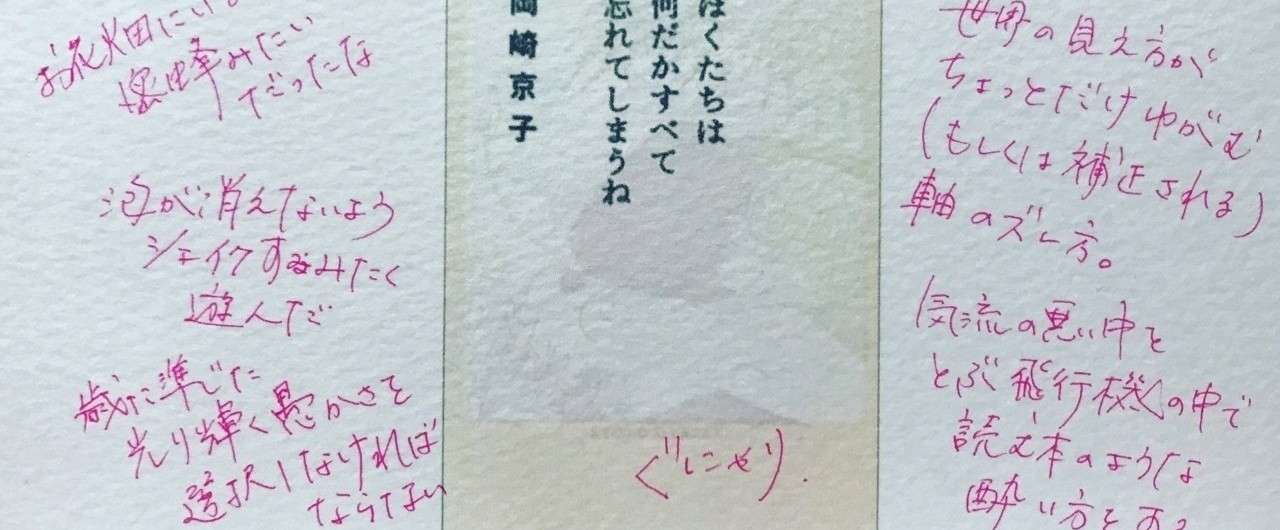 お花畑にいる
みたい
だったな
泡が消えないよう
シェイクするみたく
遊んだ
歳に準じた
光り輝く愚かさを
選択しなければ
ならない
ぼくたちは
何だかすべて
忘れてしまうね
岡崎京子
ぐにゃり.
世界の見え方が
ちょっとだけゆがむ
(もしくは補正される)
軸のズレ方。
気流の悪い中を
とぶ飛行機の中で
読む本のような
酔い方をする